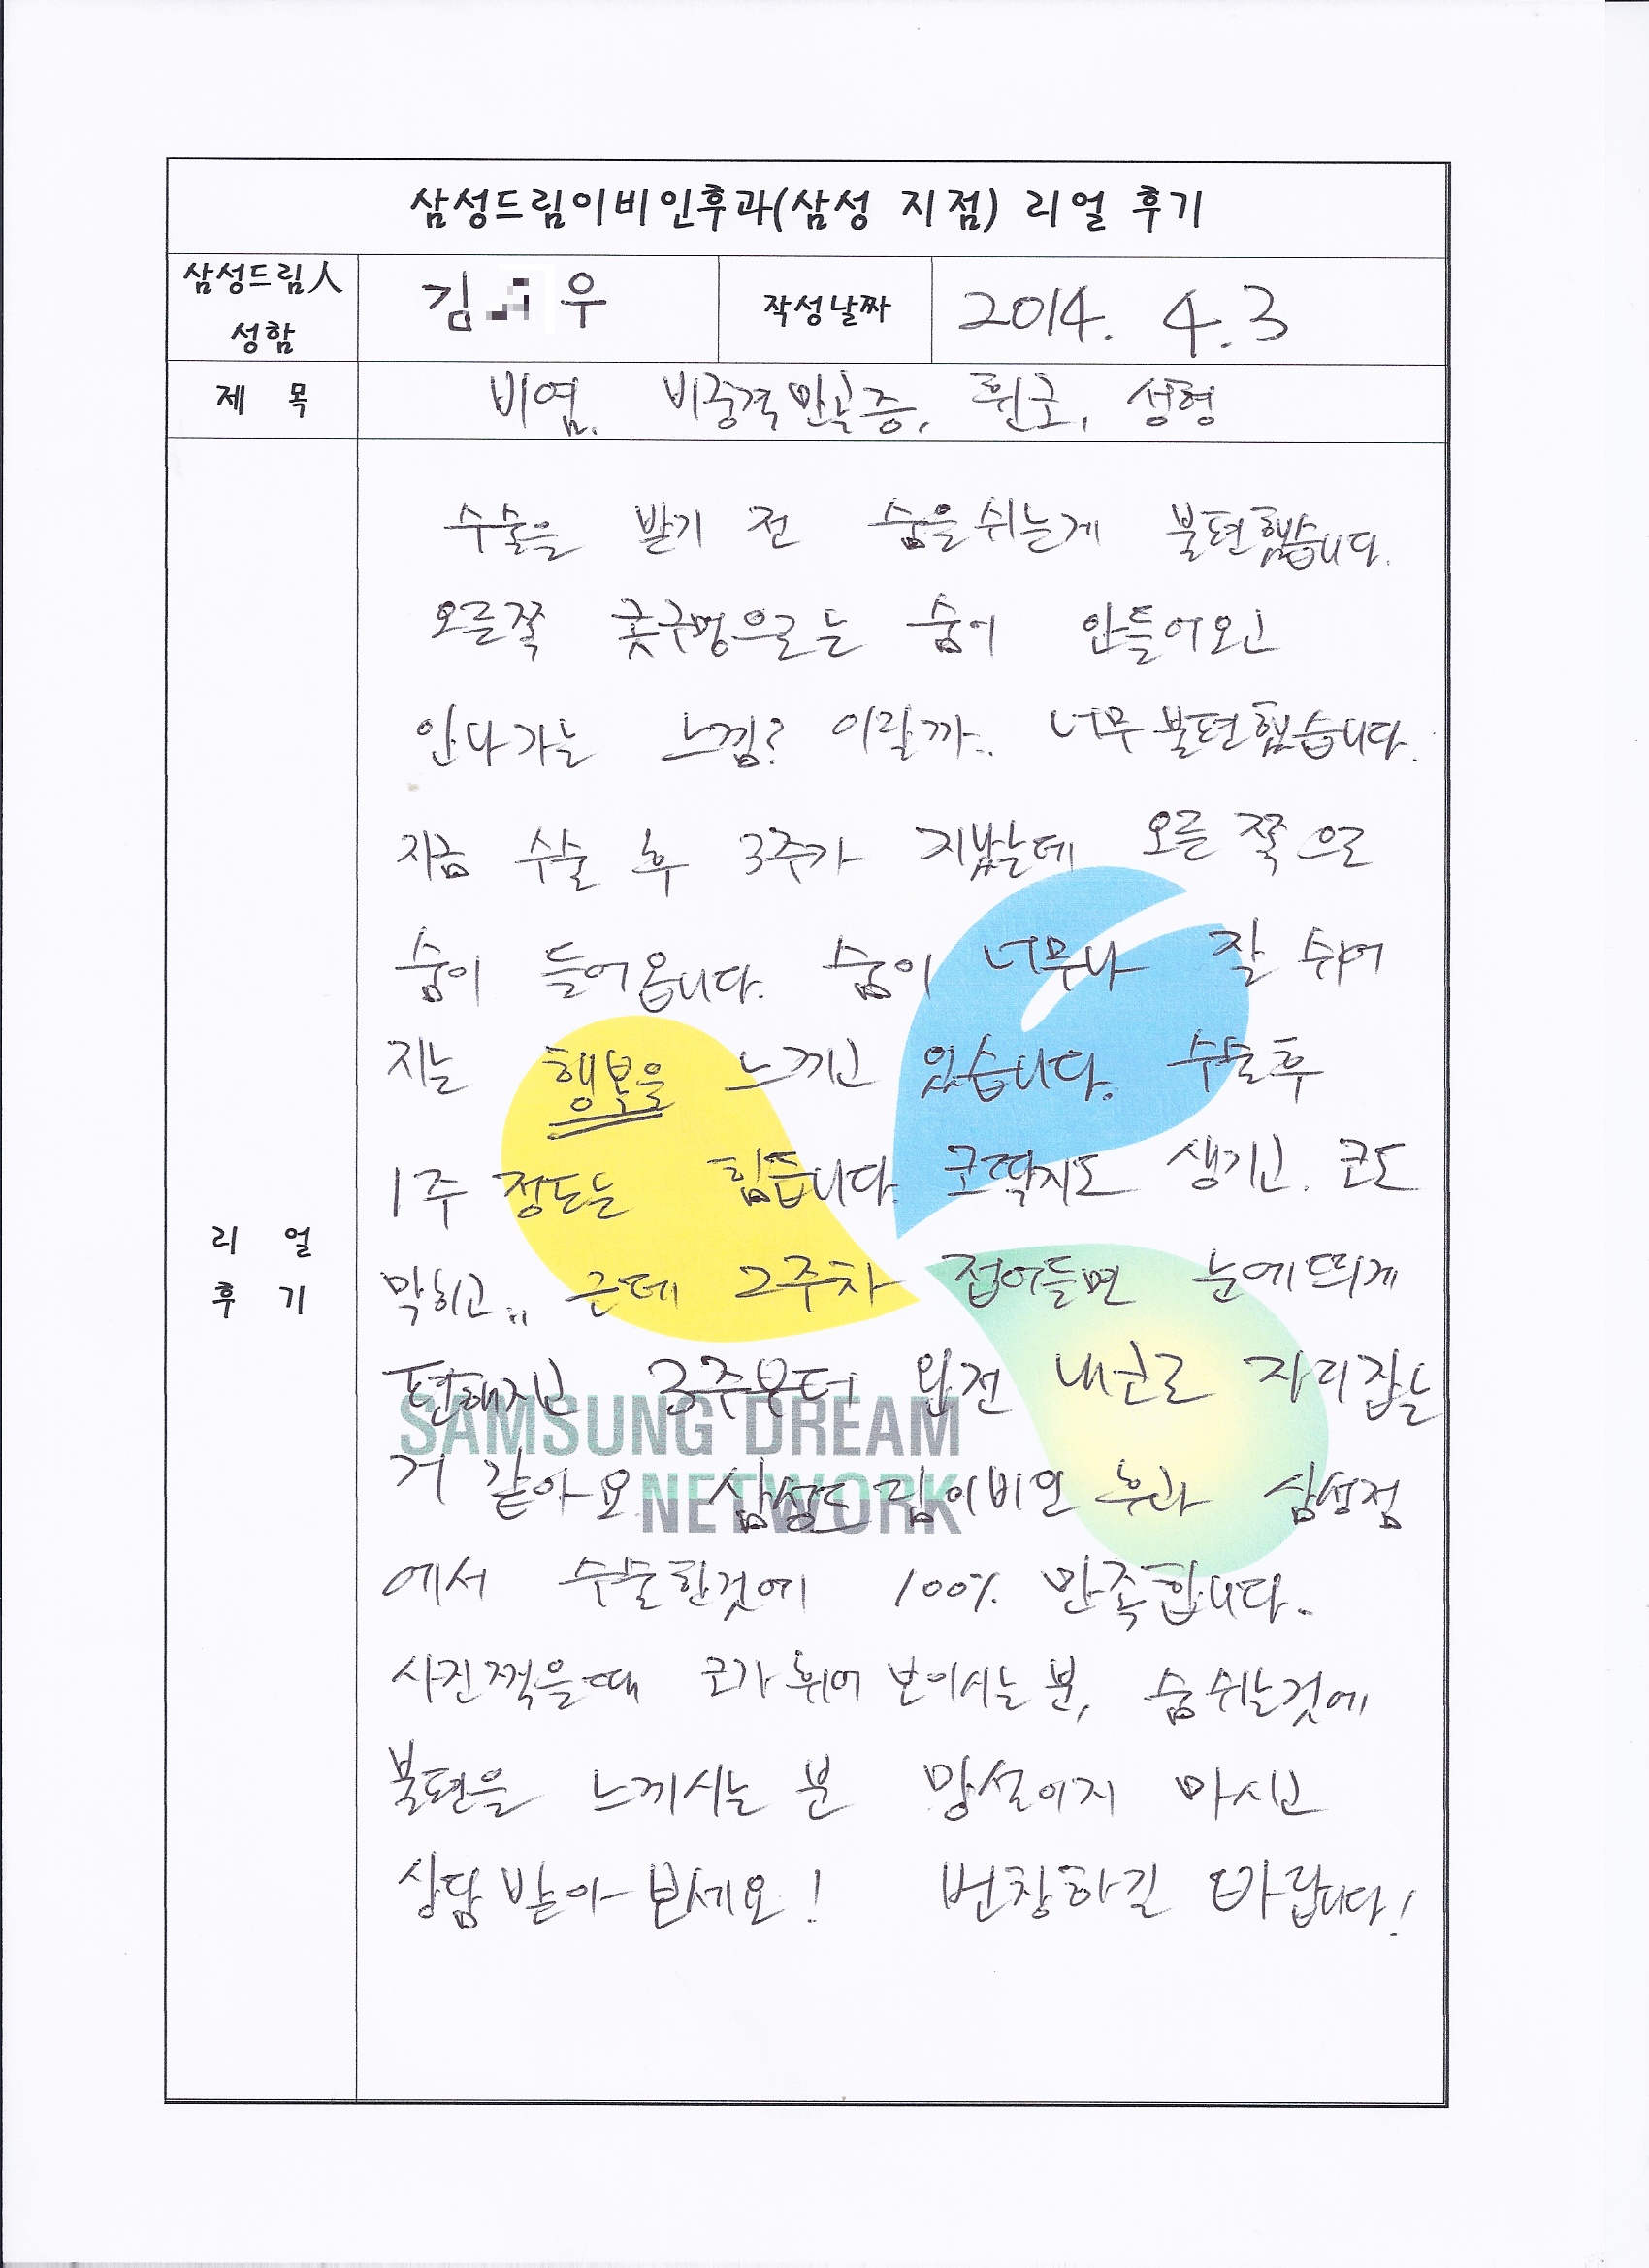 삼성드림이비인후과(삼성 지점) 리얼 후기
삼성드림人
성함
김 우
작성날짜
2014. 4. 3
제 목
비염, 비중격만곡증, 휜코, 성형
수술을 받기 전 숨을쉬는게 불편했습니다.
오른쪽 콧구멍으로는 숨이 안들어오고
안나가는 느낌? 이랄까.. 너무불편했습니다.
지금 수술 후 3주가 지났는데 오른쪽으로
숨이 들어옵니다. 숨이 너무나 잘 쉬어
지는 행복을 느끼고 있습니다. 수술후
1주 정도는 힘듭니다. 코딱지도 생기고. 코도
막히고.. 근데 2주차 접어들면 눈에띄게
편해지고 3주부터 완전 내코로 자리잡는
거 같아요 삼성드림이비인후과 삼성점
에서 수술한것에 100% 만족합니다.
사진찍을때 코가휘어 보이시는분, 숨쉬는것에
불편을 느끼시는 분 망설이지 마시고
상담받아 보세요! 번창하길 바랍니다!
리 얼
후 기
SAMSUNG DREAM
NETWORK